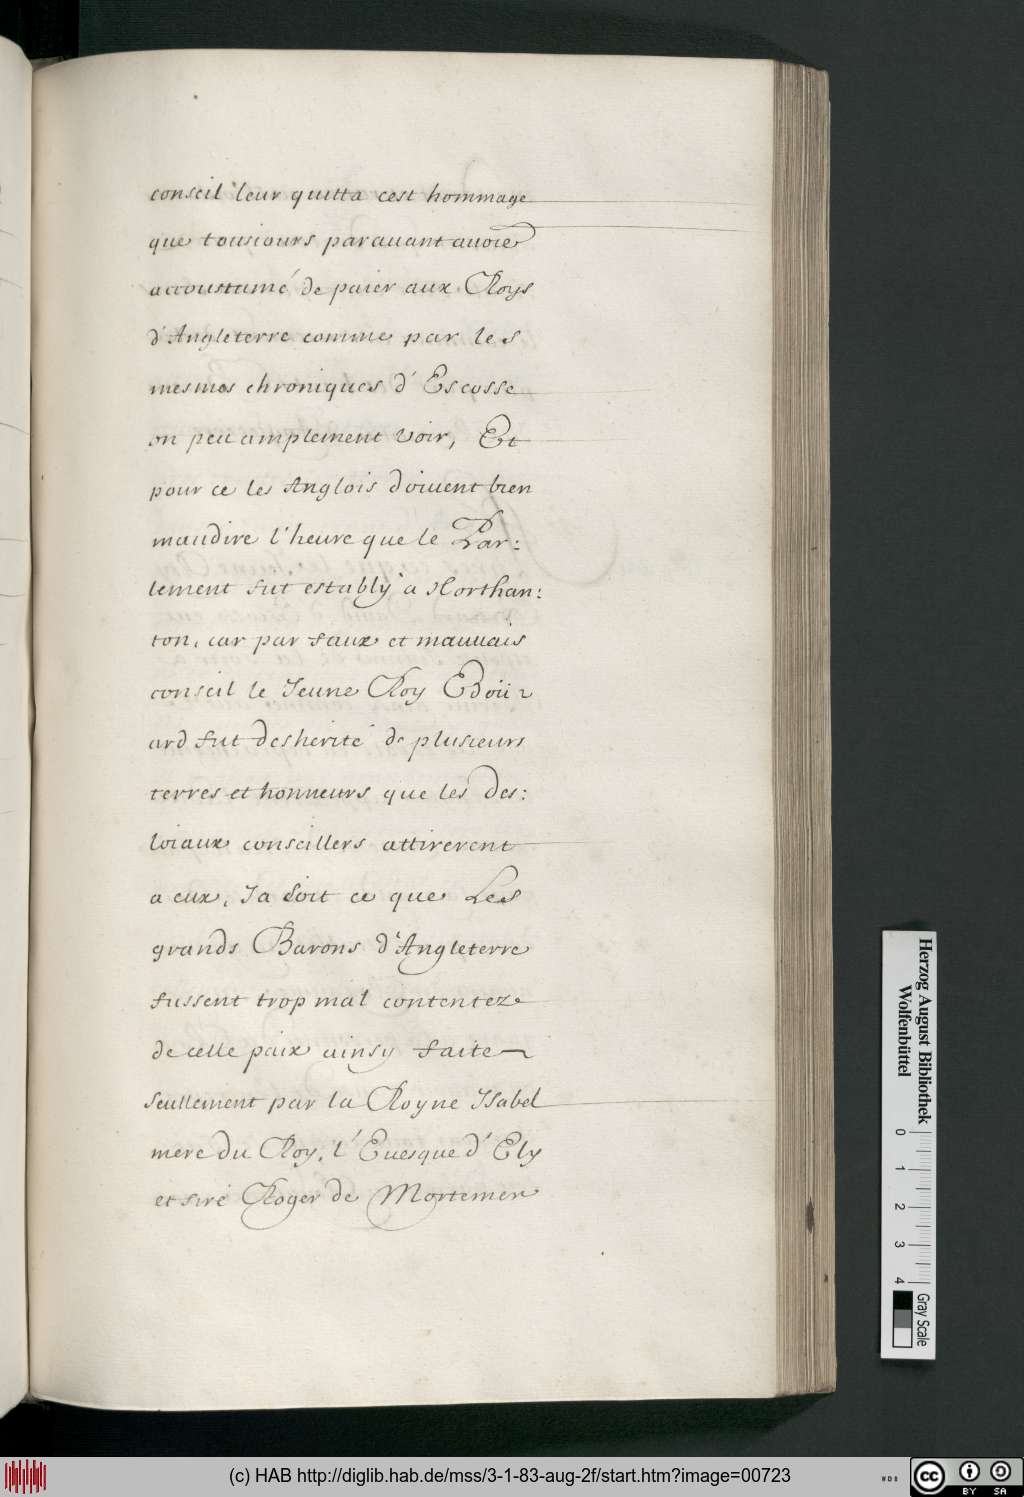 conseil leur quitta cest hommage
que tousiours parauant auoie
accoustumé de paier aux Roys
d'Angleterre comme par les
mesmes chroniques d'Escosse
on peu amplement voir, Et
pour ce les Anglois doiuent bien
maudire l'heure que le Par:
lement fut estably a Northan:
ton, car par faux et mauuais
conseil le Jeune Roy Edoü
ard fut desherité de plusieurs
terres et honneurs que les des:
loiaux conseillers attirerent
a eux, Ja soit ce que Les
grands Barons d'Angleterre
fussent trop mal contentez
de celle paix ainsy faite
seullement par la Royne Isabel
mere du Roy, l'Euesque d'Ely
et sire Roger de Mortemer
Herzog August Bibliothek
Wolfenbüttel
0 1 2 3 4
Gray Scale
(c) HAB http://diglib.hab.de/mss/3-1-83-aug-2f/start.htm?image=00723
WDB
cc BY SA